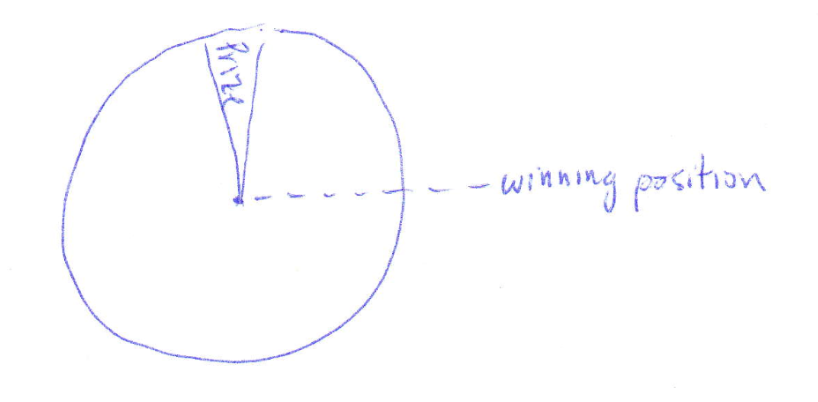 Prize
winning position